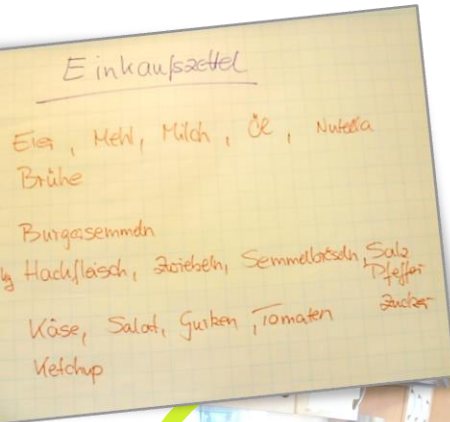 Einkaufszettel
Eier, Mehl, Milch, Öl, Nutella
Brühe
Burgersemmeln
kg Hackfleisch, Zwiebeln, Semmelbröseln, Salz
Pfeffer
Zucker
Käse, Salat, Gurken, Tomaten
Ketchup